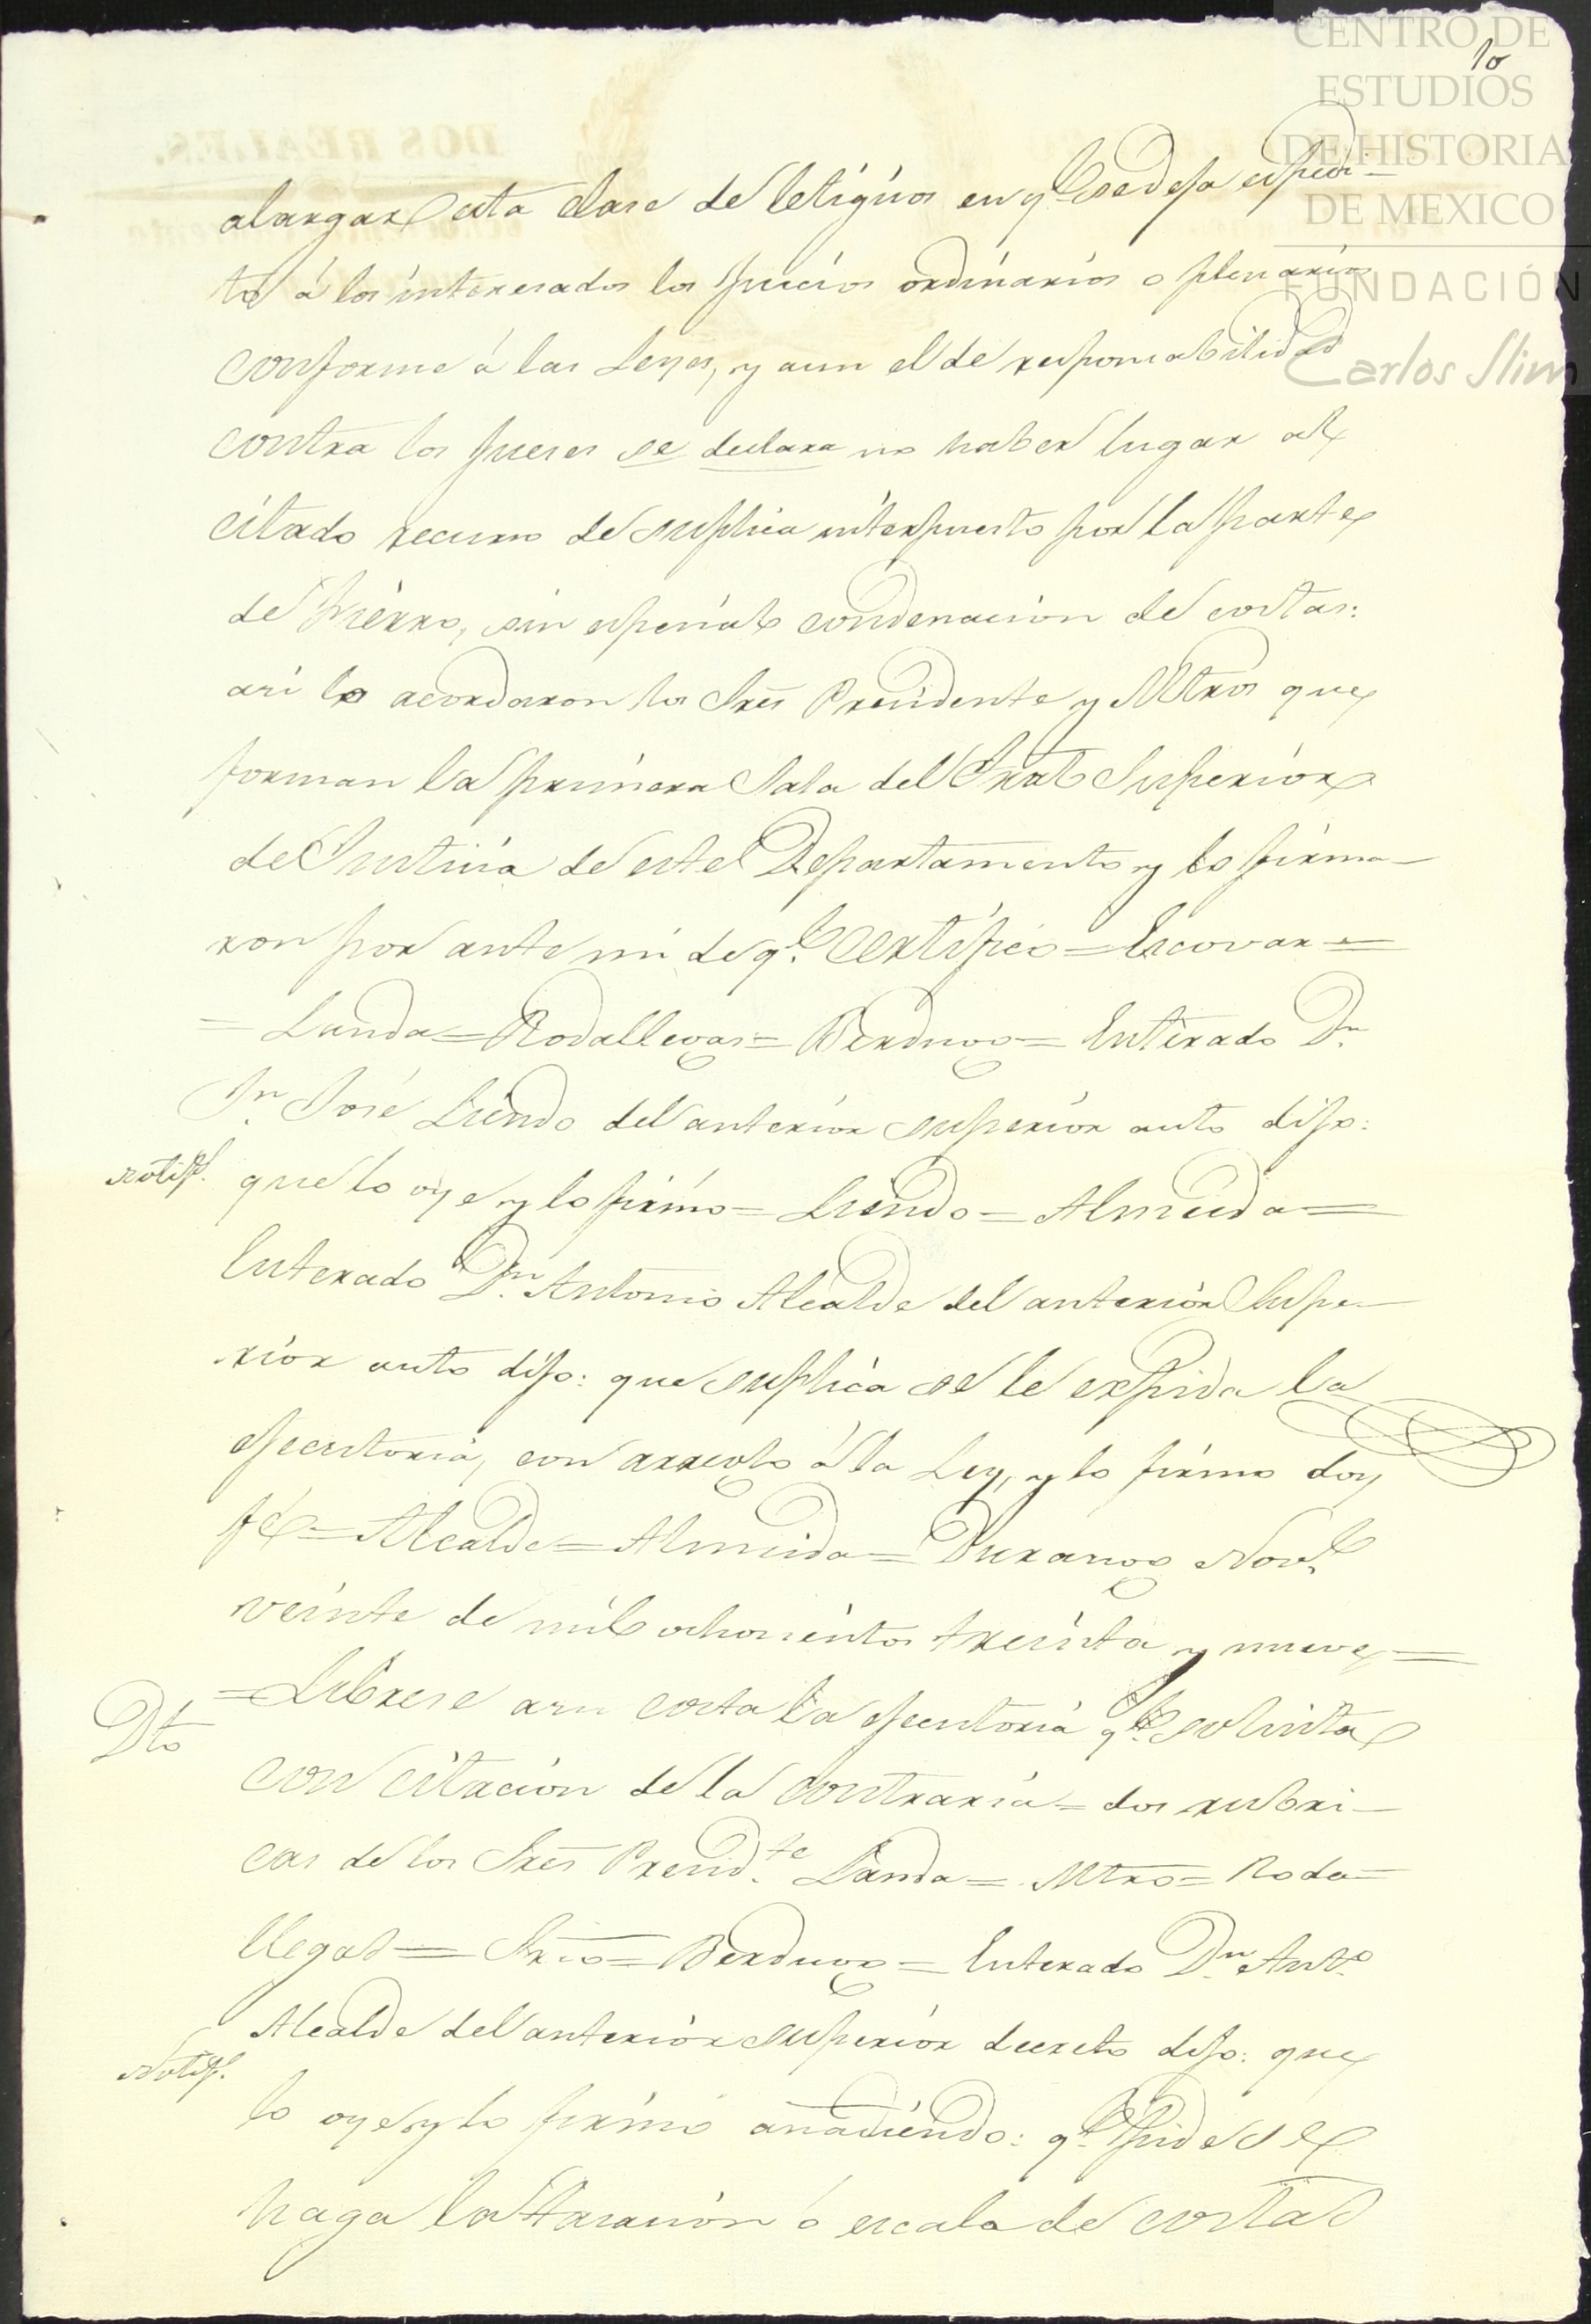 CENTRO DE
ESTUDIOS
DE HISTORIA
DE MEXICO
FUNDACIÓN
Carlos Slim
10
alargar esta clase de letigios en qe. se deja espedi-
to á los interesados los juicios ordinarios o plenarios
conforme á las Leyes, y aun el de responsabilidad
contra los jueses se declara no haber lugar al
citado recurso de suplica interpuesto por la parte
de Fierro, sin espesial condenacion de costas:
asi lo acordaron los Sres Presidente y Mtros que
forman la primera Sala del Tral Superior
de Justicia de este Departamento y lo firma-
ron por ante mi de qe. certifico = Escovar =
= Landa = Rodallegas = Berdugo = Enterado Dn.
Jn. José Liendo del anterior superior auto dijo:
Notif. que lo oye y lo firmó = Liendo = Almeida =
Enterado Dn. Antonio Alcalde del anterior Supe-
rior auto dijo: que suplica se le expida la
ejecutoria, con arreglo á la Ley, y lo firmó doy
fé = Alcalde = Almeida = Durango Nove.
veinte de mil ochosientos treinta y nueve =
Dto = Librese asu costa la ejecutoria qe. solicita
con citacion de la contraria = dos rubri-
cas de los Sres Presidte. Landa = Mtro = Roda-
llegas = Srio = Berdugo = Enterado Dn. Anto.
Alcalde del anterior superior decreto dijo: que
Notif.
lo oye y lo firmó añadiendo: qe. pide se
haga la tasacion ó escala de costas